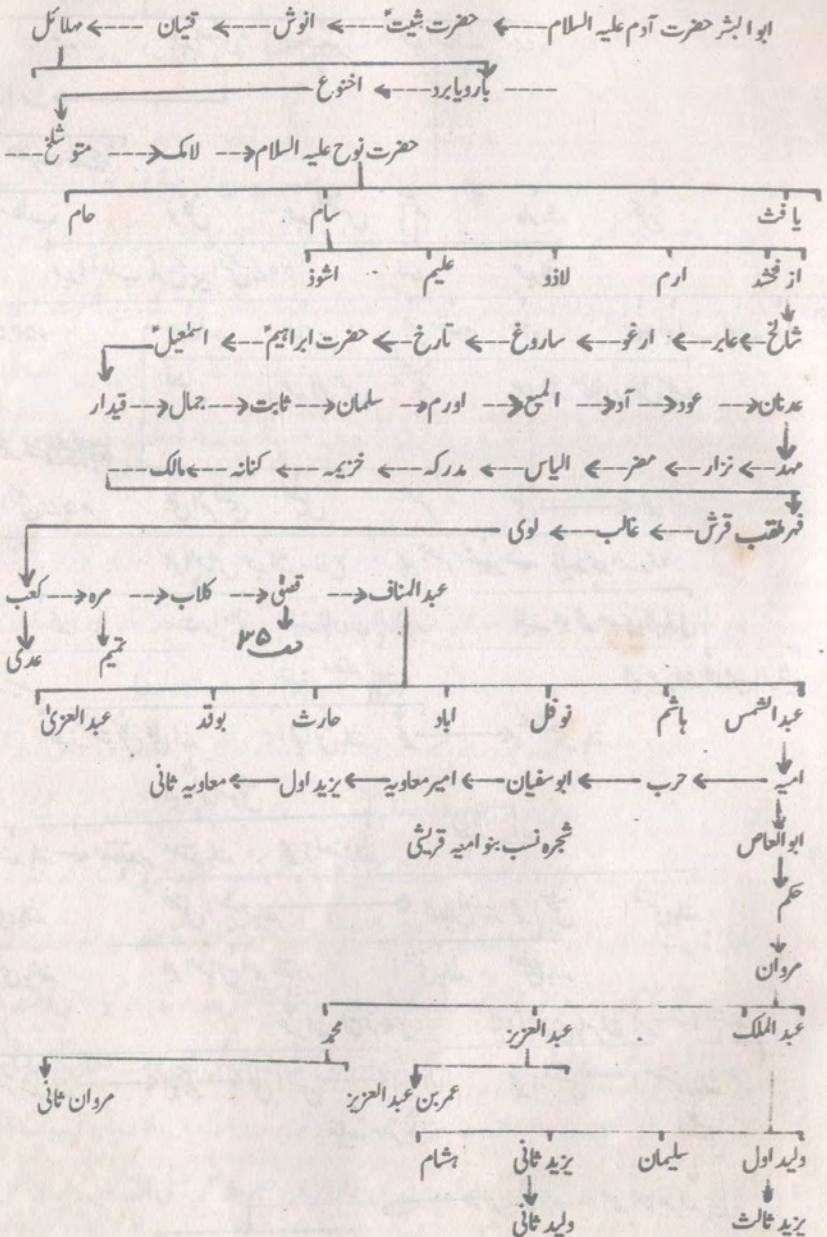 ابو البشر حضرت آدم علیہ السلام ---← حضرت شیثؑ ---← انوش ---← قنیان ---← مہلائل
---- یارویابرد ---← اخنوع
حضرت نوح علیہ السلام ←--- لامک ←--- متو شلخ ---
یافث سام حام
ازفخشد ارم لاذو علیم اشوذ
شالخ ← عابر ←-- ارغو ←-- ساروغ ←-- تارخ ←-- حضرت ابراہیمؑ ←-- اسمٰعیلؑ
عدنان ←-- عود ←-- آد ←-- المیع ←-- اورم ←-- سلمان ←-- ثابت ←-- جمال ←-- قیدار
مہد ←-- نزار ←-- مضر ←-- الیاس ←-- مدرکہ ←-- خزیمہ ←-- کنانہ ←-- مالک
فہر ملقب قرش ←-- غالب ←-- لوی
عبدالمناف ←-- قصیٰ ←-- کلاب ←-- مرہ ←-- کعب
۳۵ تمیم عدی
عبدالشمس ہاشم نوفل اباد حارث بوقد عبدالعزیٰ
امیہ ←-- حرب ←-- ابوسفیان ←-- امیر معاویہ ←-- یزید اول ←-- معاویہ ثانی
ابوالعاص شجرہ نسب بنو امیہ قریشی
حکم
مروان
عبدالملک عبدالعزیز محمد
عمر بن عبدالعزیز مروان ثانی
ولید اول سلیمان یزید ثانی ہشام
یزید ثالث ولید ثانی